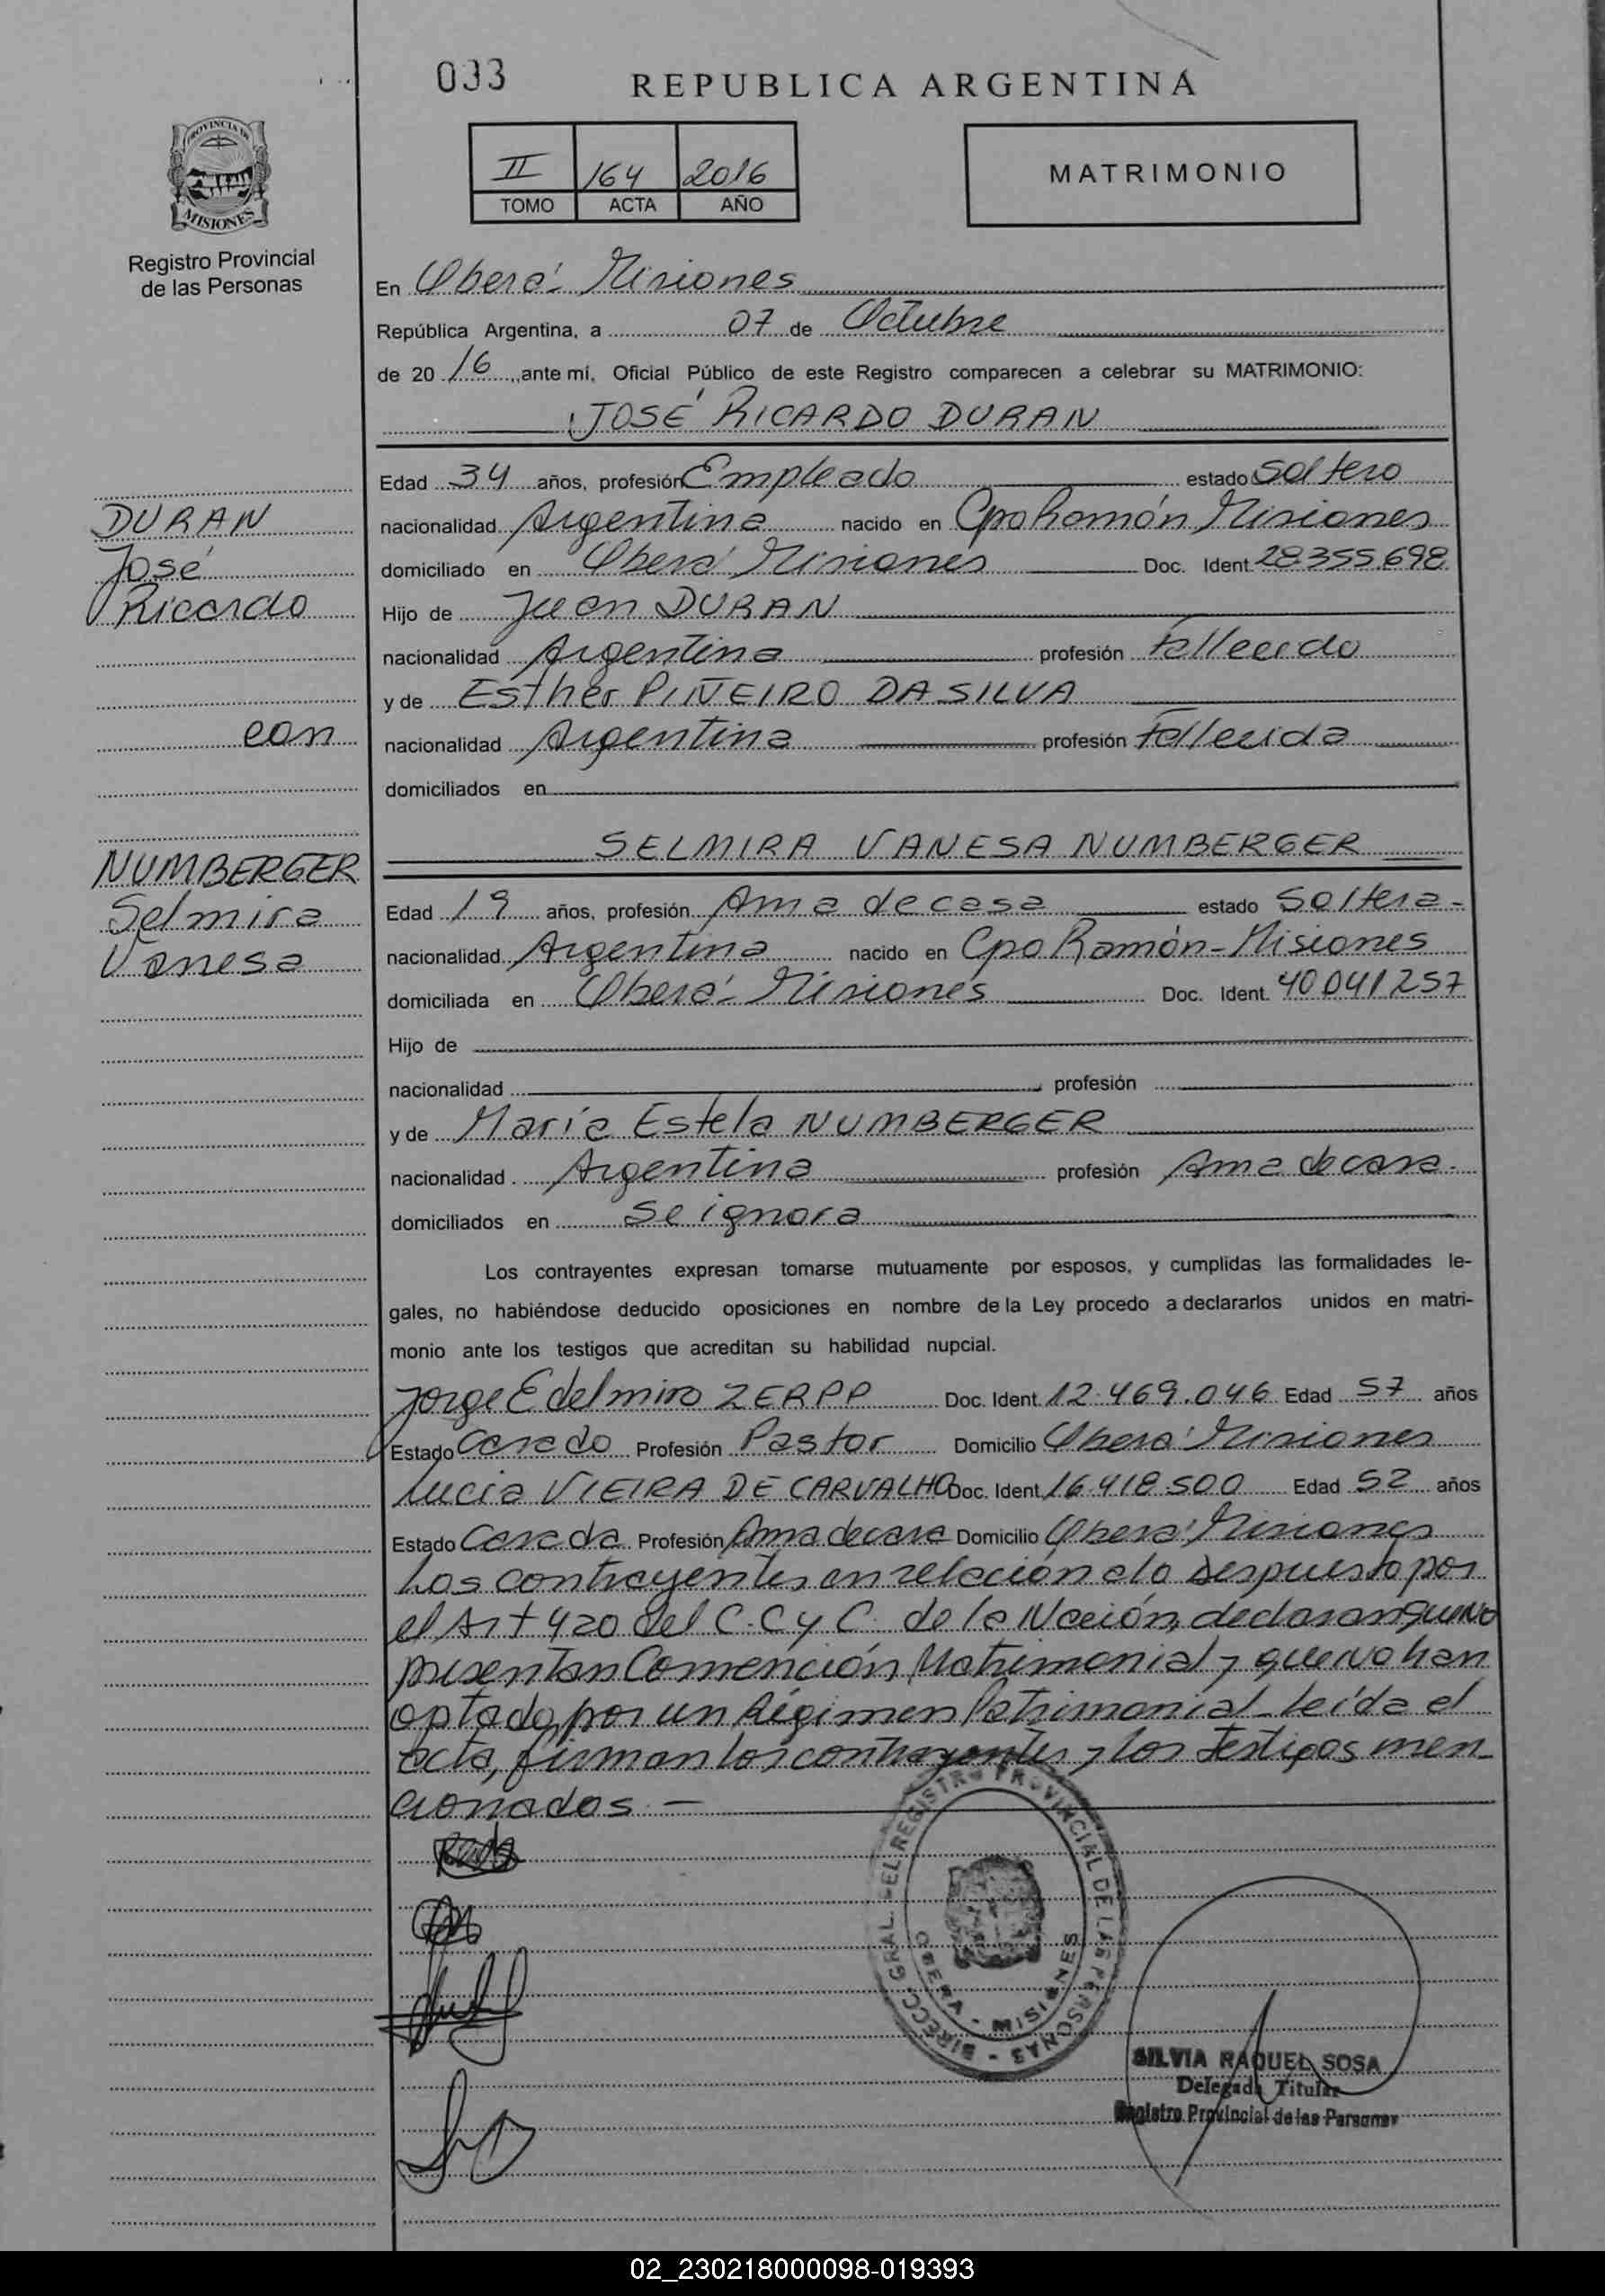 033
REPUBLICA ARGENTINA
PROVINCIA DE
MISIONES
Registro Provincial
de las Personas
II 164 2016
TOMO ACTA AÑO
MATRIMONIO
En Oberá - Misiones
República Argentina, a 07 de Octubre
de 20 16, ante mí, Oficial Público de este Registro comparecen a celebrar su MATRIMONIO:
JOSÉ RICARDO DURAN
Edad 34 años, profesión Empleado estado Soltero
nacionalidad Argentina nacido en Cpo Ramón, Misiones
domiciliado en Oberá Misiones Doc. Ident. 28.355.698
Hijo de Juan DURAN
nacionalidad Argentina profesión Fallecido
y de Esther PIÑEIRO DA SILVA
nacionalidad Argentina profesión Fallecida
domiciliados en
DURAN
José
Ricardo
con
NUMBERGER
Selmira
Vanesa
SELMIRA VANESA NUMBERGER
Edad 19 años, profesión Ama de casa estado Soltera -
nacionalidad Argentina nacido en Cpo Ramón - Misiones
domiciliada en Oberá - Misiones Doc. Ident. 40041257
Hijo de
nacionalidad profesión
y de María Estela NUMBERGER
nacionalidad Argentina profesión Ama de casa.
domiciliados en Se ignora
Los contrayentes expresan tomarse mutuamente por esposos, y cumplidas las formalidades le-
gales, no habiéndose deducido oposiciones en nombre de la Ley procedo a declararlos unidos en matri-
monio ante los testigos que acreditan su habilidad nupcial.
Jorge Edelmiro ZERPP Doc. Ident. 12.469.046 Edad 57 años
Estado Casado Profesión Pastor Domicilio Oberá Misiones
Lucia VIEIRA DE CARVALHO Doc. Ident. 16.418.500 Edad 52 años
Estado Casada Profesión Ama de casa Domicilio Oberá Misiones
Los contrayentes en relación a lo Despuesto por
el Art 420 del C.C y C. de la Nación, declaran que NO
presentan Convención Matrimonial y que No han
optado por un Régimen Patrimonial - Leída el
acta, firman los contrayentes y los Testigos men-
cionados. -
DIRECC. GRAL. DEL REGISTRO PROVINCIAL DE LAS PERSONAS -
OBERA - MISIONES
SILVIA RAQUEL SOSA
Delegada Titular
Registro Provincial de las Personas
02_230218000098-019393